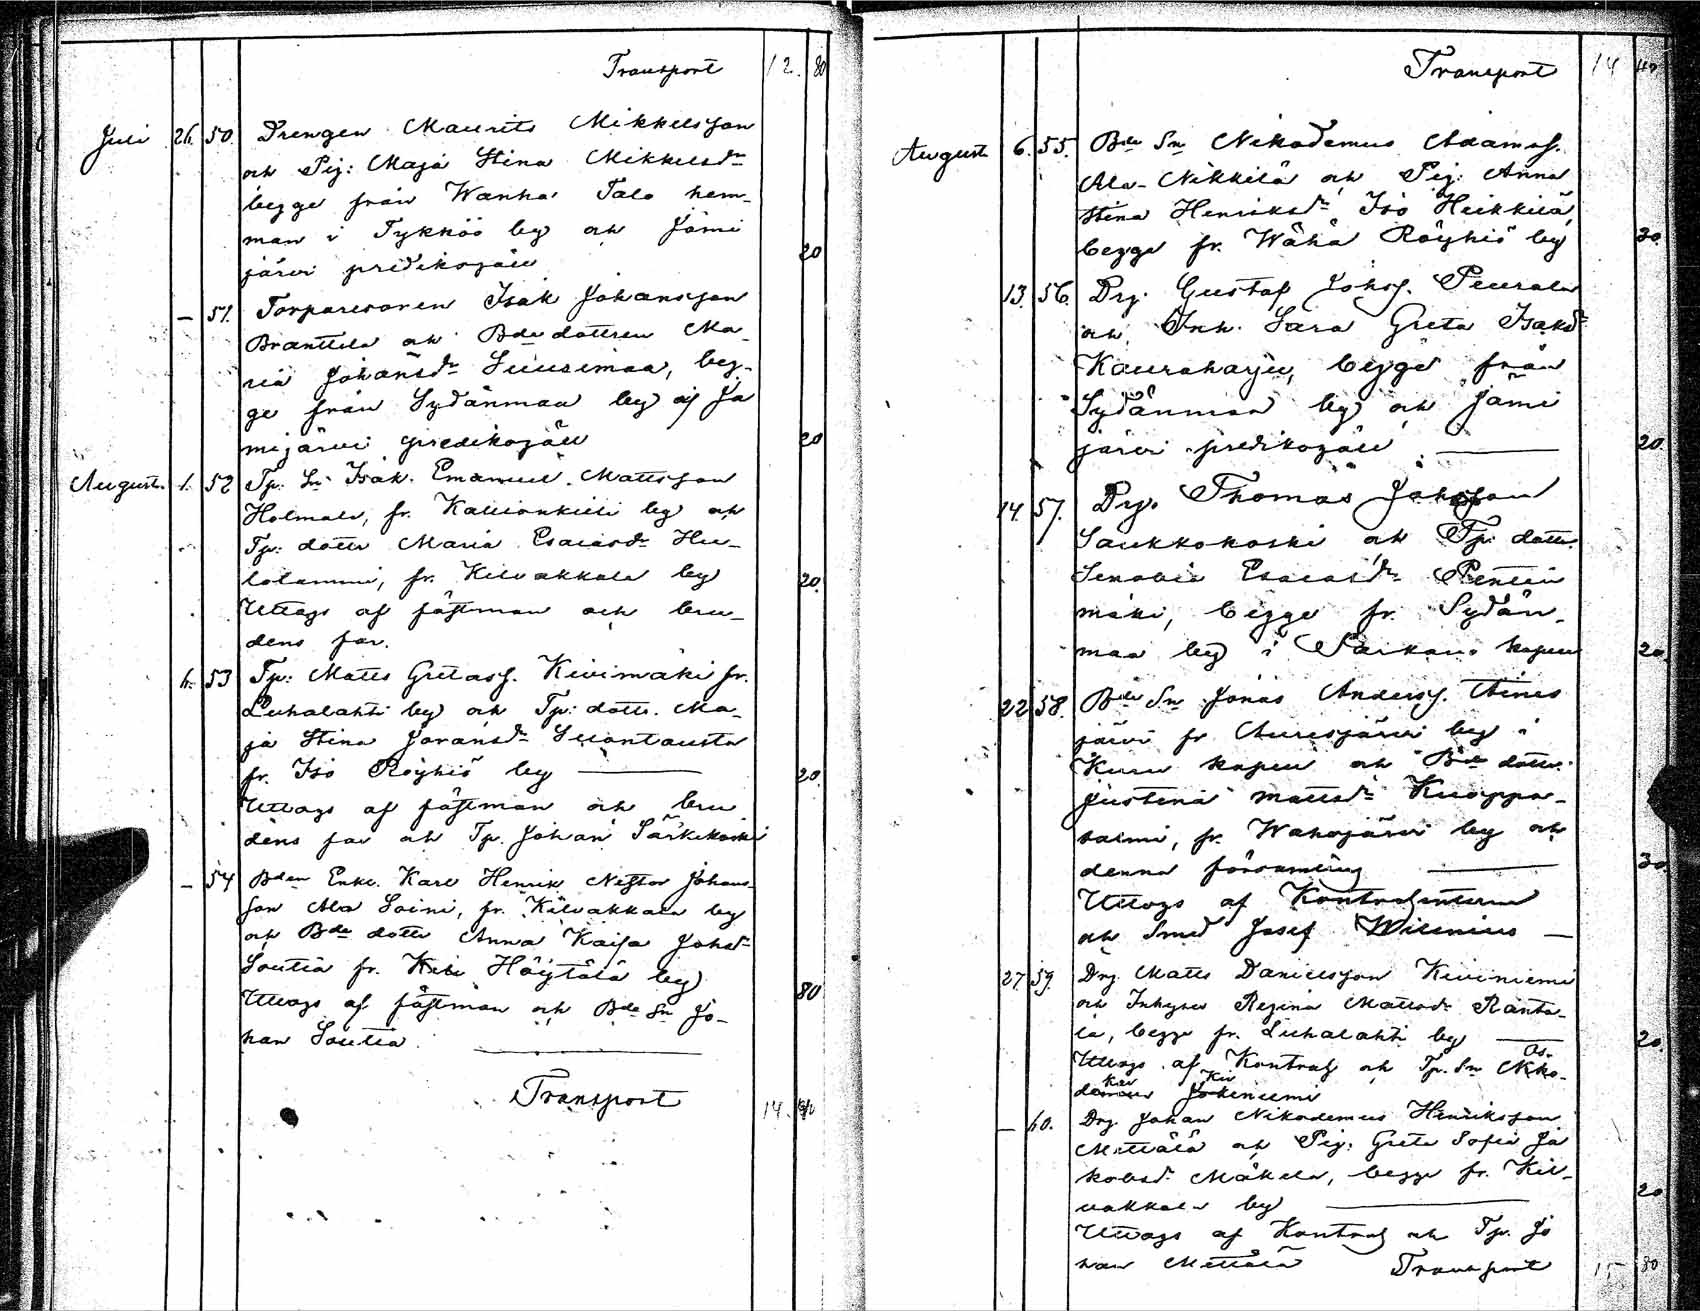 Transport 12. 80
Juli 26. 50. Drengen Maurits Mikkelsson
och Pig: Maja Stina Mikkelsdr
begge från Wanha Talo hem-
man i Tykköö by och Jämi
järvi predikogäll 20
— 51. Torparesonen Isak Johansson
Branttila och Bde dottren Ma-
ria Johansdr Suusimaa, beg-
ge från Sydänmaa by af Jä
mijärvi predikogäll 20
August. 1. 52 Tp: Sn Isak Emanuel Mattsson
Holmala, fr. Kallionkieli by och
Tp: dottr Maria Esaiasdr Hu-
lolammi, fr. Kilvakkala by 20.
Uttogs af fästman och bru-
dens far.
6. 53 Tp: Matts Gretass. Kivimäki fr.
Luhalahti by och Tp: dott. Ma-
ja Stina Joransdr Suontausta
fr. Iso Röyhiö by — 20.
Uttogs af fästman och bru
dens far och Tp. Johan Särkikoski
— 54 Bden Enkl. Karl Henrik Nestor Johans-
son Ala Soini, fr. Kilvakkala by
och Bde dottr Anna Kajsa Johsdr
Soutia fr. Höytölä by 80
Uttogs af fästman och Bde Sn Jo-
han Soutia. —
Transport 14. 40
Transport 14 40
August 6. 55. Bde Sn Nikodemus Adamss.
Ala-Nikkilä och Pig: Anna
Stina Henriksdr Iso Heikkilä,
begge fr. Wähä Röyhiö by 20.
13. 56. Drg. Gustaf Johss. Peurala
och Inh. Sara Greta Isaksdr
Kauraharju, begge från
Sydänmaa by och Jämi
järvi predikogäll — 20.
14. 57. Drg. Thomas Johsson
Saukkokoski och Tp: dottr.
Senabia Esaiasdr Penttin
mäki, begge fr. Sydän-
maa by i Parkano kapell 20.
22 58. Bde Sn Jonas Anderss. Aines
järvi fr Aurejärvi by i
Kuru kapell och Bde dottr.
Justina Mattsdr Kuoppa-
salmi, fr. Wahojärvi by och
denna församling — 30.
Uttogs af Kontrahenterna
och Smed Josef Wilenius —
27. 59. Drg. Matts Danielsson Kiviniemi
och Inhyses Regina Mattsdr Ranta-
la, begge fr. Luhalahti by — 20.
Uttogs af Kontrah och Tp. Sn Os-
kar Kiviniemi
— 60. Drg. Johan Nikodemus Henriksson
Mettälä och Pig: Greta Sofia Ja
kobsd. Mäkelä, begge fr. Kil-
vakkala by — 20
Uttogs af Kontrah och Tp. Jo
han Mettälä Transport 15 80